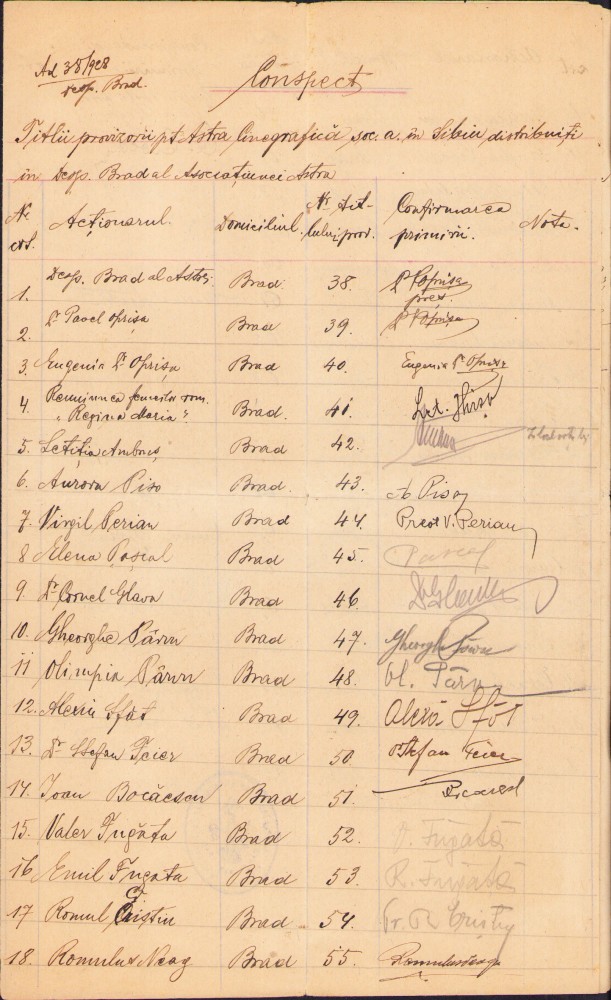 Ad 38/928
desp. Brad.
Conspect
Titlii provizorii pt Astra Cinegrafică soc. a. în Sibiu distribuiți
în Desp. Brad al Asociațiunei Astra
Nr. crt. Acționarul. Domiciliul. Nr titlului prov. Confirmarea primirii. Nota.
1. Desp. Brad al Astrei Brad. 38. Dr Oprișa prez.
2. Dr Pavel Oprișa Brad 39. Dr Oprișa
3. Eugenia Dr Oprișa Brad 40. Eugenia Dr Oprișa
4. Reuniunea femeilor rom. „Regina Maria" Brad. 41.
5. Letiția Ambruș Brad 42.
6. Aurora Piso Brad. 43. A Piso
7. Virgil Perian Brad 44. Preot V. Perian
8 Elena Pașcal Brad 45. Pascal
9. Dr Cornel Glava Brad 46. Dr Glava
10. Gheorghe Pârvu Brad 47. Gheorghe Pârvu
11 Olimpia Pârvu Brad 48. Ol. Pârvu
12. Alexiu Sfât Brad 49. Alexiu Sfât
13. Dr Stefan Feier Brad 50. Dr Stefan Feier
14. Ioan Bocăescu Brad 51.
15. Valer Fugăta Brad 52. V. Fugată
16 Emil Fugata Brad 53. Fugată
17 Romul Cristiu Brad 54.
18. Romulus Neag Brad 55. Romulus Neag